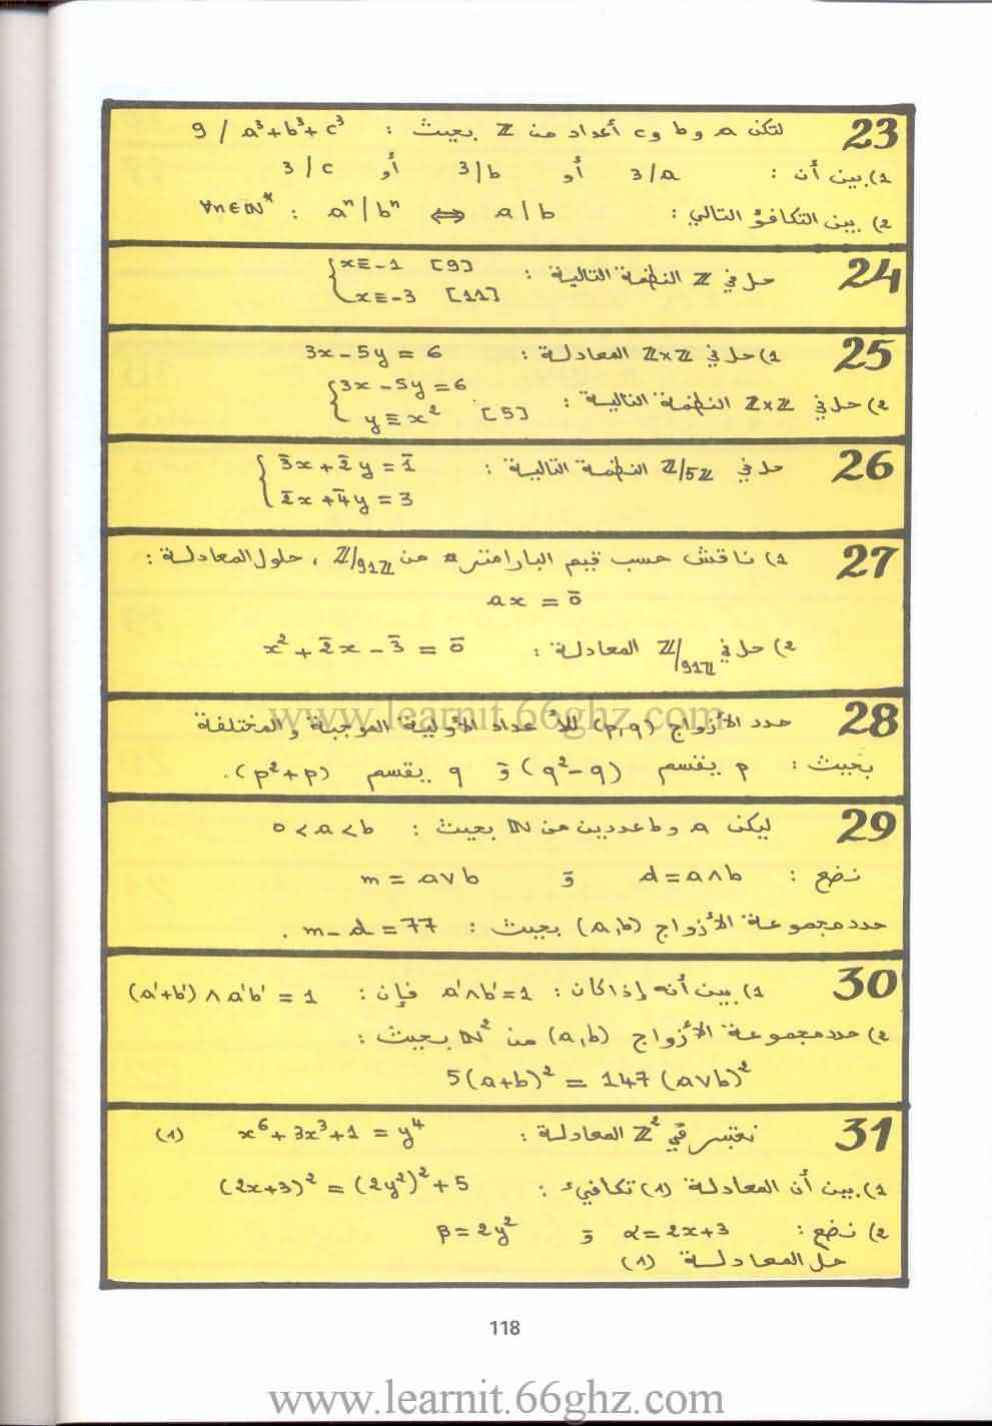 23 لتكن a و b و c أعداد من ℤ بحيث : 9 / a³+b³+c³
1) بين أن : 3/a أو 3|b أو 3/c
2) بين التكافؤ التالي : a|b ⇔ aⁿ|bⁿ : ∀n∈ℕ*
24 حل في ℤ النظمة التالية : { x≡-1 [9]
x≡-3 [11]
25 1) حل في ℤ×ℤ المعادلة : 3x-5y = 6
2) حل في ℤ×ℤ النظمة التالية : { 3x-5y=6
y≡x² [5]
26 حل في ℤ/5ℤ النظمة التالية : { 3̄x+2̄y=1̄
2̄x+4̄y=3
27 1) ناقش حسب قيم البارامتر a من ℤ/91ℤ ، حلول المعادلة :
ax = 0̄
2) حل في ℤ/91ℤ المعادلة : x²+2̄x-3̄ = 0̄
28 حدد الأزواج (p,q) للأعداد الأولية الموجبة والمختلفة
بحيث : p يقسم (q²-q) و q يقسم (p²+p).
29 ليكن a و b عددين من ℕ بحيث : 0<a<b
نضع : d=a∧b و m = a∨b
حدد مجموعة الأزواج (a,b) بحيث : m-d=77 .
30 1) بين أنه إذا كان : a'∧b'=1 فإن : (a'+b')∧a'b' = 1
2) حدد مجموعة الأزواج (a,b) من ℕ² بحيث :
5(a+b)² = 147(a∨b)²
31 نعتبر في ℤ² المعادلة : x⁶+3x³+1 = y⁴ (1)
1) بين أن المعادلة (1) تكافيء : (2x+3)² = (2y²)²+5
2) نضع : α=2x+3 و β=2y²
حل المعادلة (1)
118
www.learnit.66ghz.com
www.learnit.66ghz.com